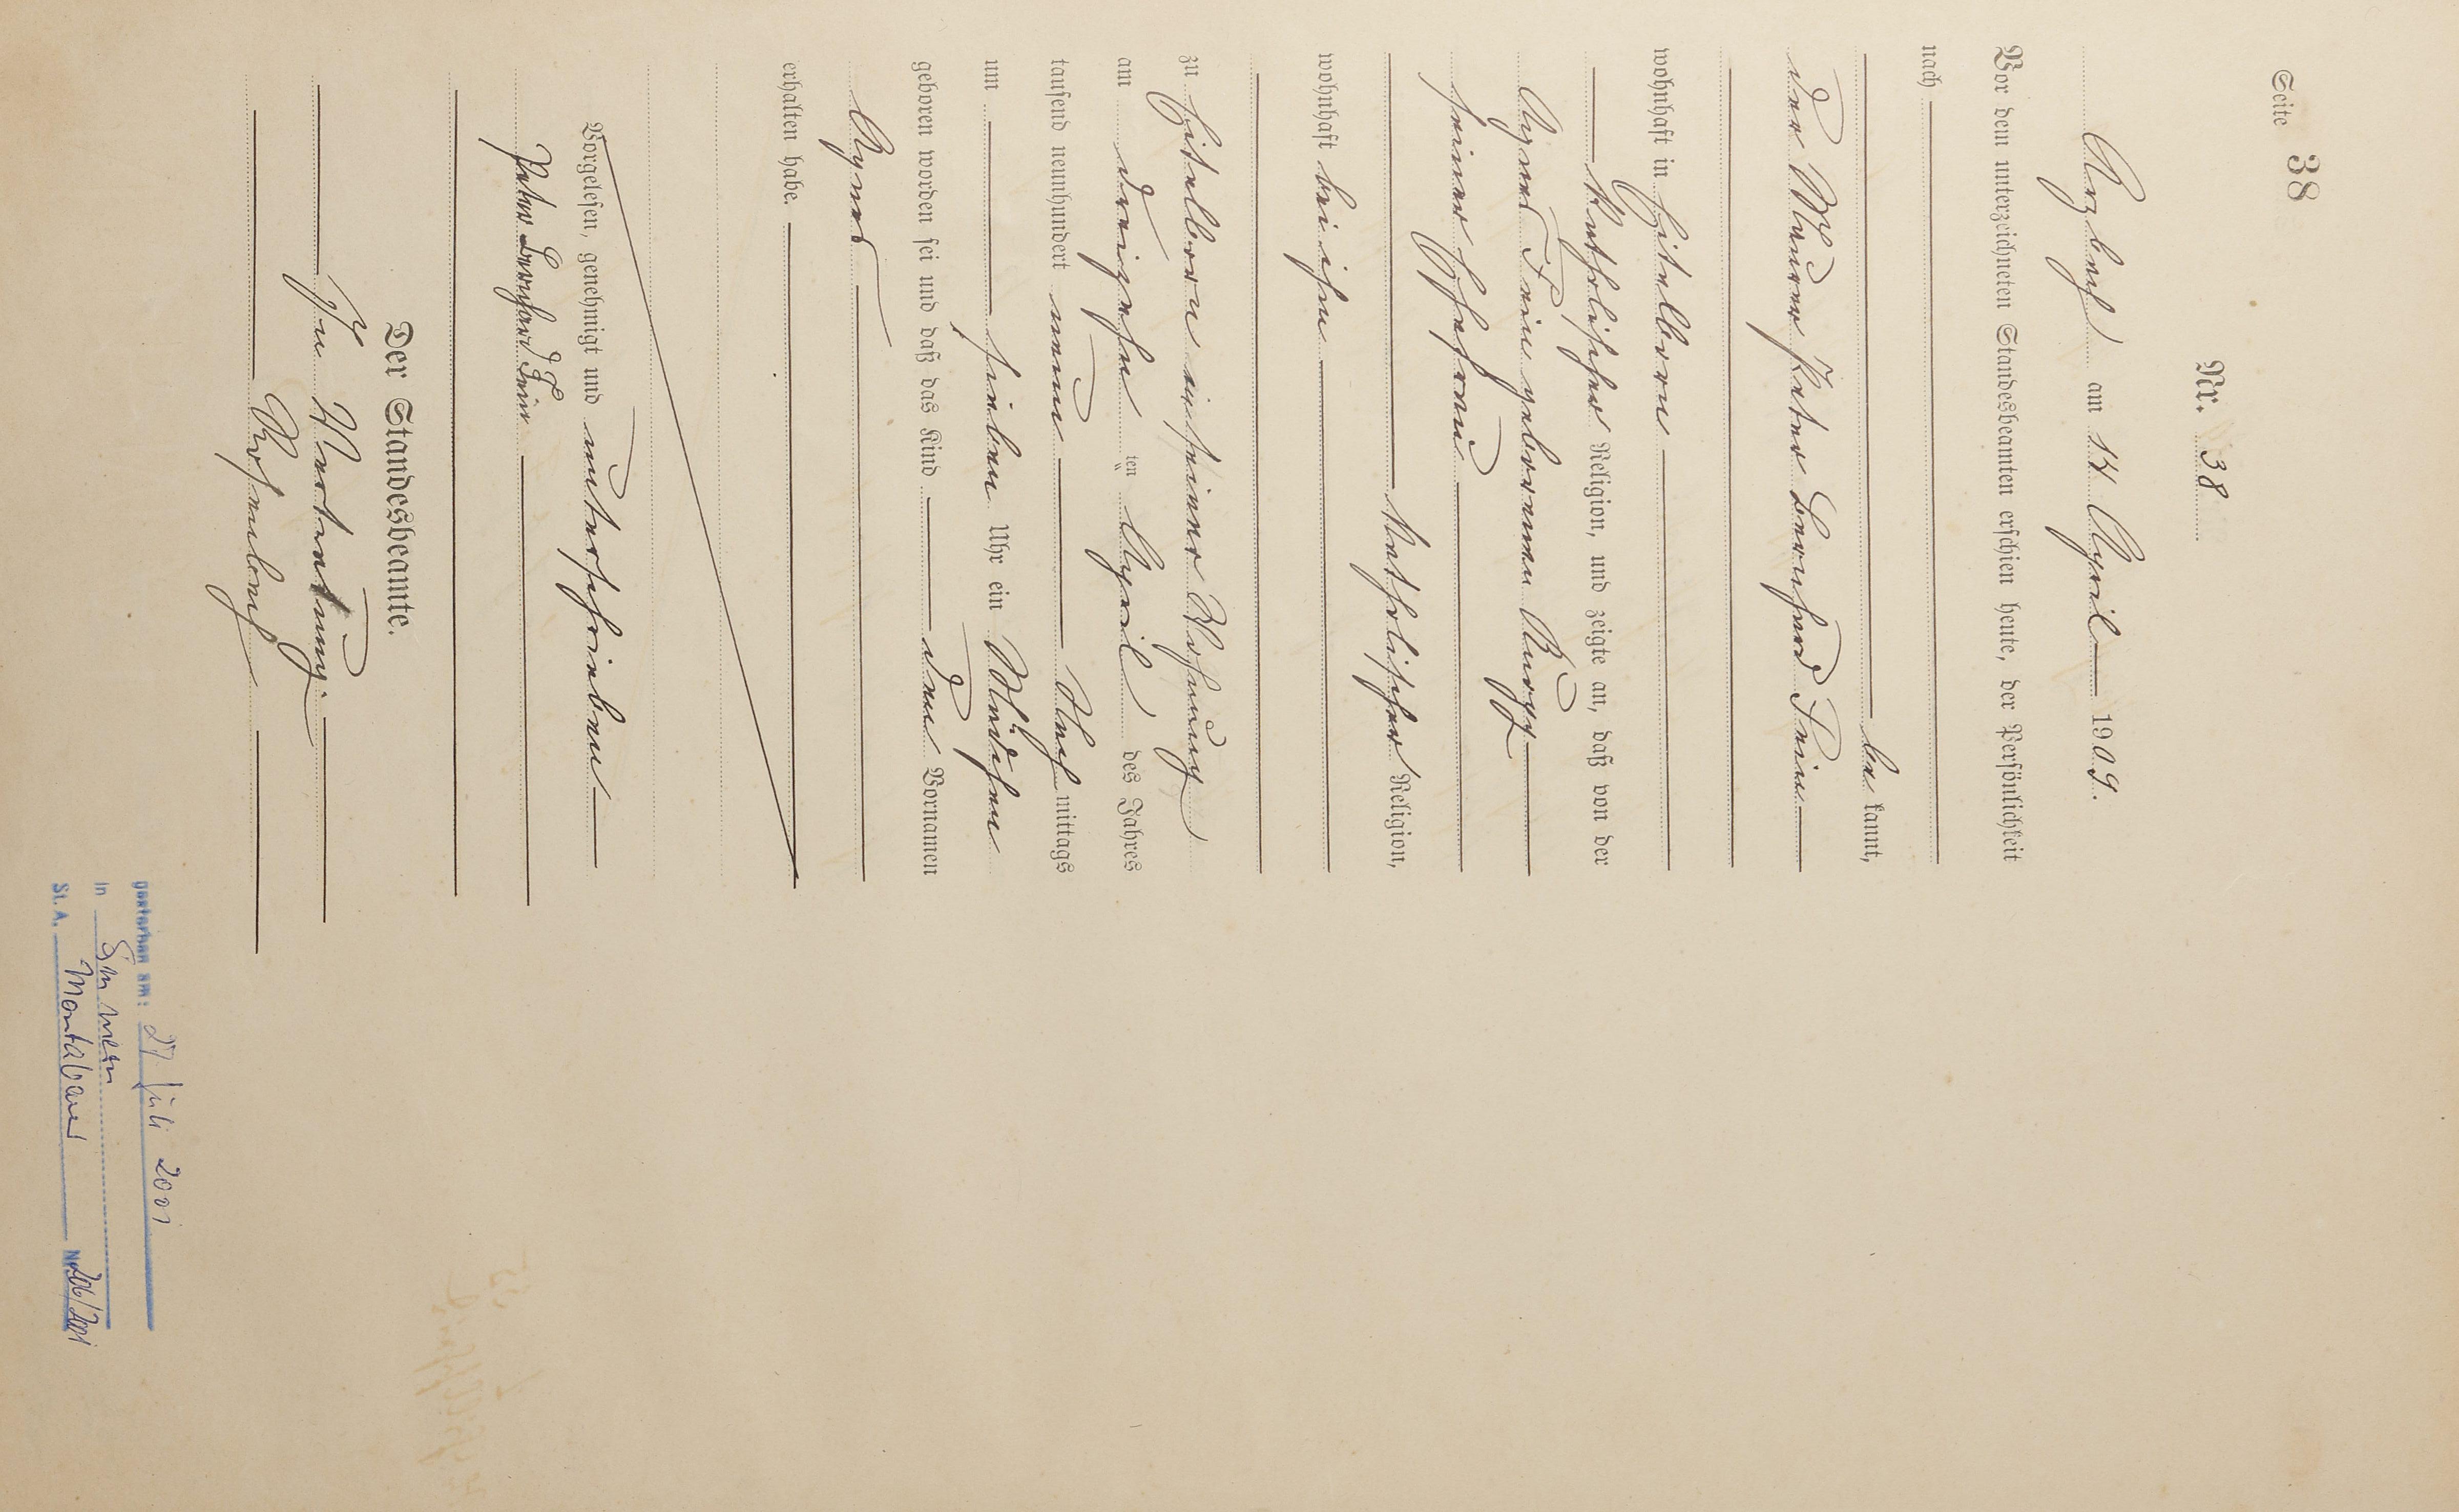 Seite 38
Nr. 38
Arzbach am 14 April 1909.
Vor dem unterzeichneten Standesbeamten erschien heute, der Persönlichkeit
nach
be kannt,
der Maurer Peter Bernhard Fein
wohnhaft in Eitelborn
katholischer Religion, und zeigte an, daß von der
Agnes Fein geborenen
seiner Ehefrau
katholischer Religion,
wohnhaft bei ihm
zu Eitelborn in seiner Wohnung
am dreizehn ten April des Jahres
tausend neunhundert neun Nach mittags
um sieben Uhr ein Mädchen
geboren worden sei und daß das Kind den Vornamen
Agnes
erhalten habe.
Vorgelesen, genehmigt und unterschrieben
Peter Bernhard Fein
Der Standesbeamte.
In Vertretung.
gestorben am: 27 Juli 2001
in Simmern
St. A. Montabaur Nr. 206/2001